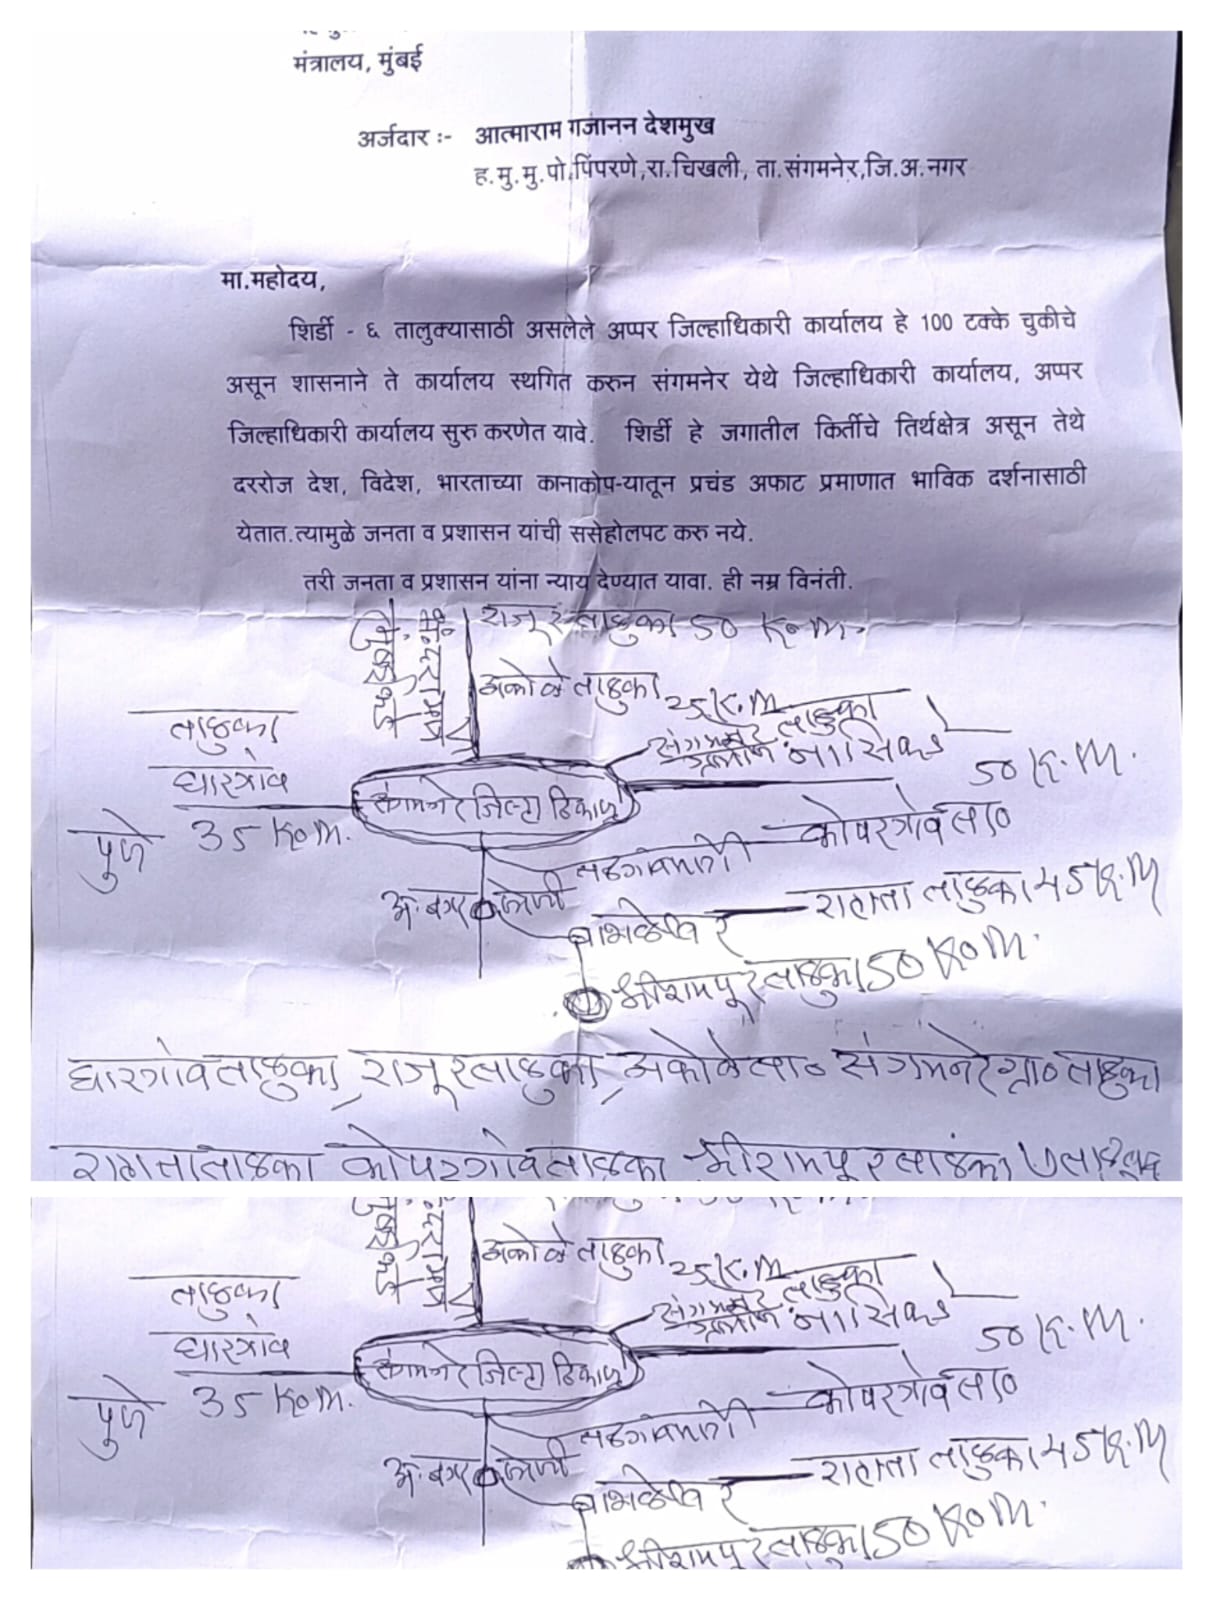 मंत्रालय, मुंबई
अर्जदार :- आत्माराम गजानन देशमुख
ह.मु.मु.पो.पिंपरणे,रा.चिखली, ता.संगमनेर,जि.अ.नगर
मा.महोदय,
शिर्डी - ६ तालुक्यासाठी असलेले अप्पर जिल्हाधिकारी कार्यालय हे 100 टक्के चुकीचे
असून शासनाने ते कार्यालय स्थगित करुन संगमनेर येथे जिल्हाधिकारी कार्यालय, अप्पर
जिल्हाधिकारी कार्यालय सुरु करणेत यावे. शिर्डी हे जगातील किर्तीचे तिर्थक्षेत्र असून तेथे
दररोज देश, विदेश, भारताच्या कानाकोप-यातून प्रचंड अफाट प्रमाणात भाविक दर्शनासाठी
येतात.त्यामुळे जनता व प्रशासन यांची ससेहोलपट करु नये.
तरी जनता व प्रशासन यांना न्याय देण्यात यावा. ही नम्र विनंती.
राजूर तालुका 50 K.M.
अकोले तालुका 25 K.M.
तालुका
घारगांव
संगमनेर तालुका
ग्रामीण नाशिक
50 K.M.
संगमनेर जिल्हा ठिकाण
पुणे 35 K.M.
कोपरगांव ता०
राहाता तालुका 45 K.M
बाभळेश्वर
श्रीरामपूर तालुका 50 K.M.
घारगांव तालुका, राजूर तालुका, अकोले ता० संगमनेर ग्रा० तालुका
राहाता तालुका कोपरगांव तालुका श्रीरामपूर तालुका
अकोले तालुका 25 K.M.
तालुका
घारगांव
संगमनेर तालुका
ग्रामीण नाशिक
50 K.M.
संगमनेर जिल्हा ठिकाण
पुणे 35 K.M.
कोपरगांव ता०
राहाता तालुका 45 K.M
बाभळेश्वर
श्रीरामपूर तालुका 50 K.M.